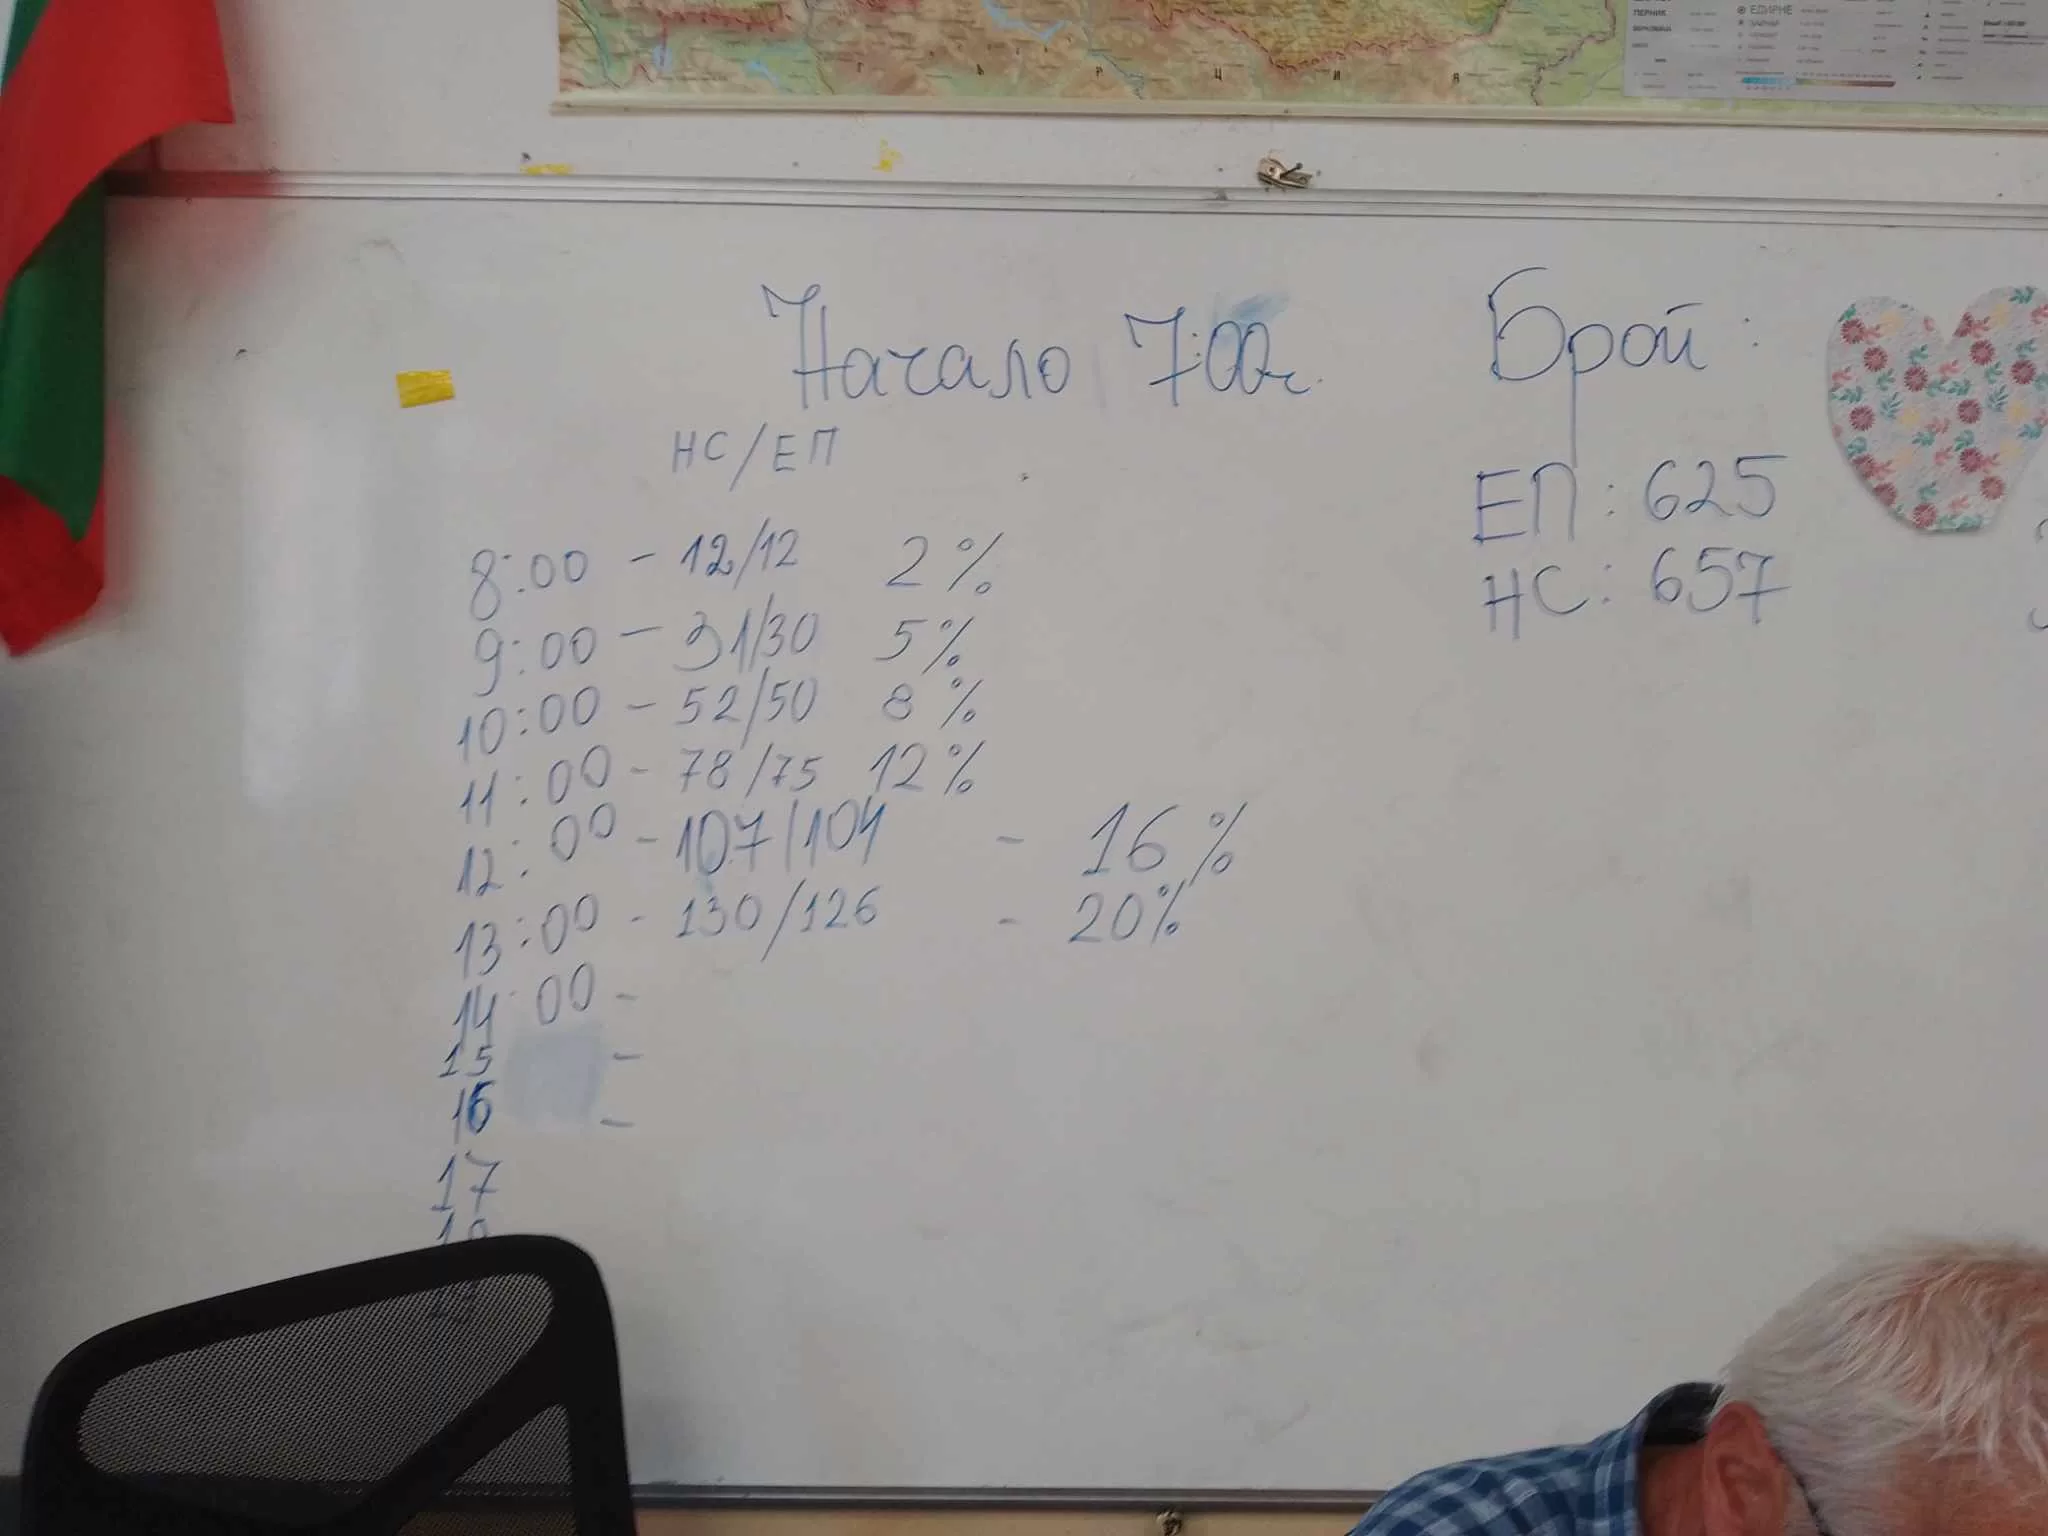 ПЕРНИК
ЕДИРНЕ
Г Ъ Р Ц И Я
Начало 7:00ч.
Брой:
НС/ЕП
ЕП: 625
НС: 657
8:00 - 12/12 2%
9:00 - 31/30 5%
10:00 - 52/50 8%
11:00 - 78/75 12%
12:00 - 107/104 - 16%
13:00 - 130/126 - 20%
14:00 -
15 -
16 -
17